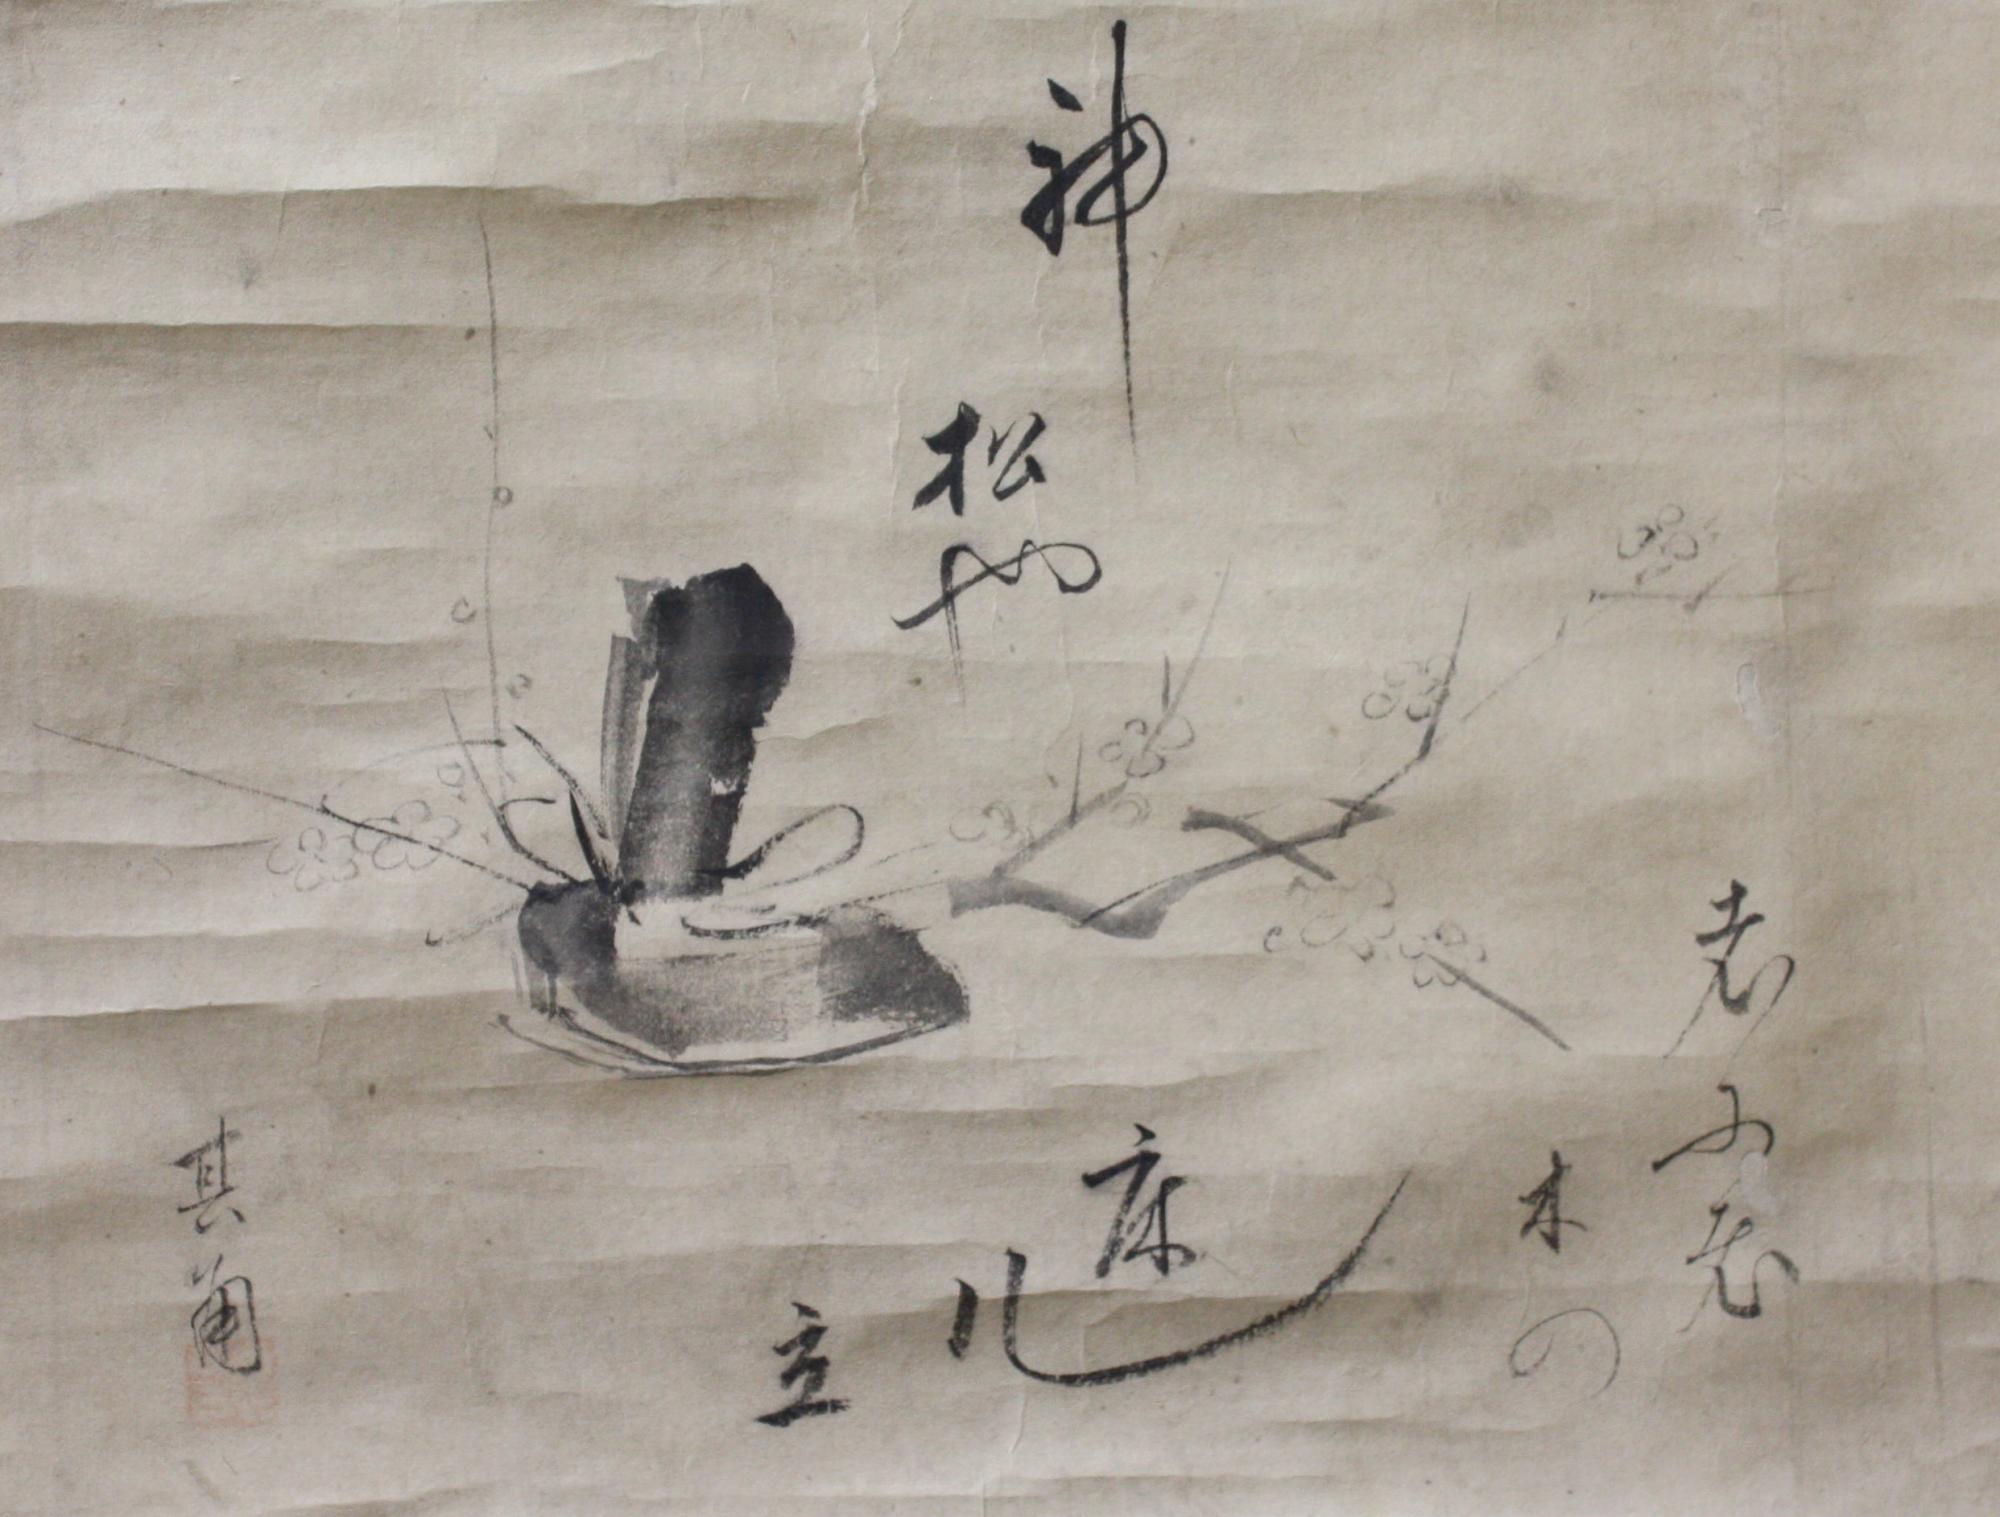 神
松や
老
老
木の
床
几
立
其角